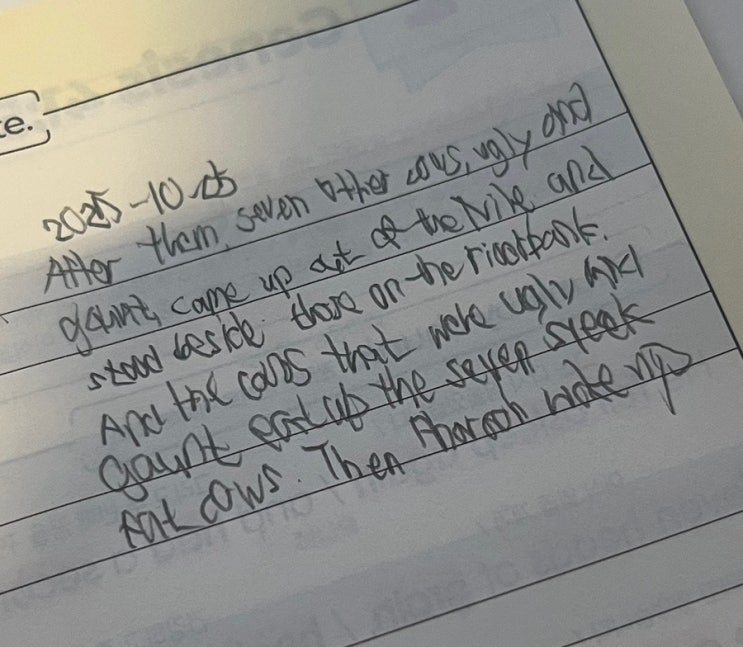 e.
2025-10-25
After them, seven other cows, ugly and
gaunt, came up out of the Nile and
stood beside those on the riverbank.
And the cows that were ugly and
gaunt eat up the seven sleek
fat cows. Then Pharaoh woke up